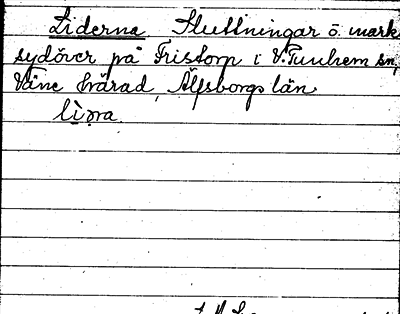 Liderna Sluttningar o. mark
sydöver på Fristorp i V. Tunhem sn,
Väne härad, Älfsborgs län